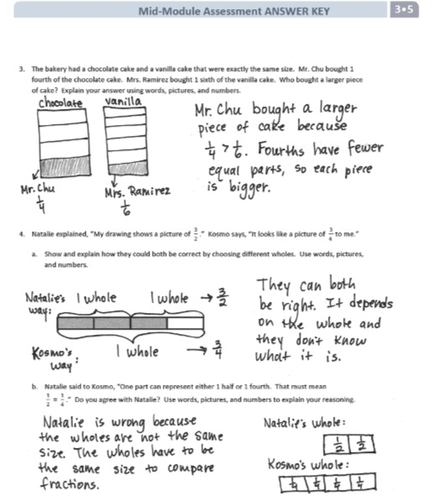 Mid-Module Assessment ANSWER KEY
3•5
3. The bakery had a chocolate cake and a vanilla cake that were exactly the same size. Mr. Chu bought 1
fourth of the chocolate cake. Mrs. Ramirez bought 1 sixth of the vanilla cake. Who bought a larger piece
of cake? Explain your answer using words, pictures, and numbers.
chocolate vanilla
Mr. Chu bought a larger
piece of cake because
1/4 > 1/6. Fourths have fewer
equal parts, so each piece
is bigger.
Mr. Chu
1/4
Mrs. Ramirez
1/6
4. Natalie explained, "My drawing shows a picture of 3/2." Kosmo says, "It looks like a picture of 3/4 to me."
a. Show and explain how they could both be correct by choosing different wholes. Use words, pictures,
and numbers.
Natalie's way: 1 whole 1 whole → 3/2
Kosmo's way: 1 whole → 3/4
They can both
be right. It depends
on the whole and
they don't know
what it is.
b. Natalie said to Kosmo, "One part can represent either 1 half or 1 fourth. That must mean
1/2 = 1/4." Do you agree with Natalie? Use words, pictures, and numbers to explain your reasoning.
Natalie is wrong because
the wholes are not the same
size. The wholes have to be
the same size to compare
fractions.
Natalie's whole:
1/2 1/2
Kosmo's whole:
1/4 1/4 1/4 1/4